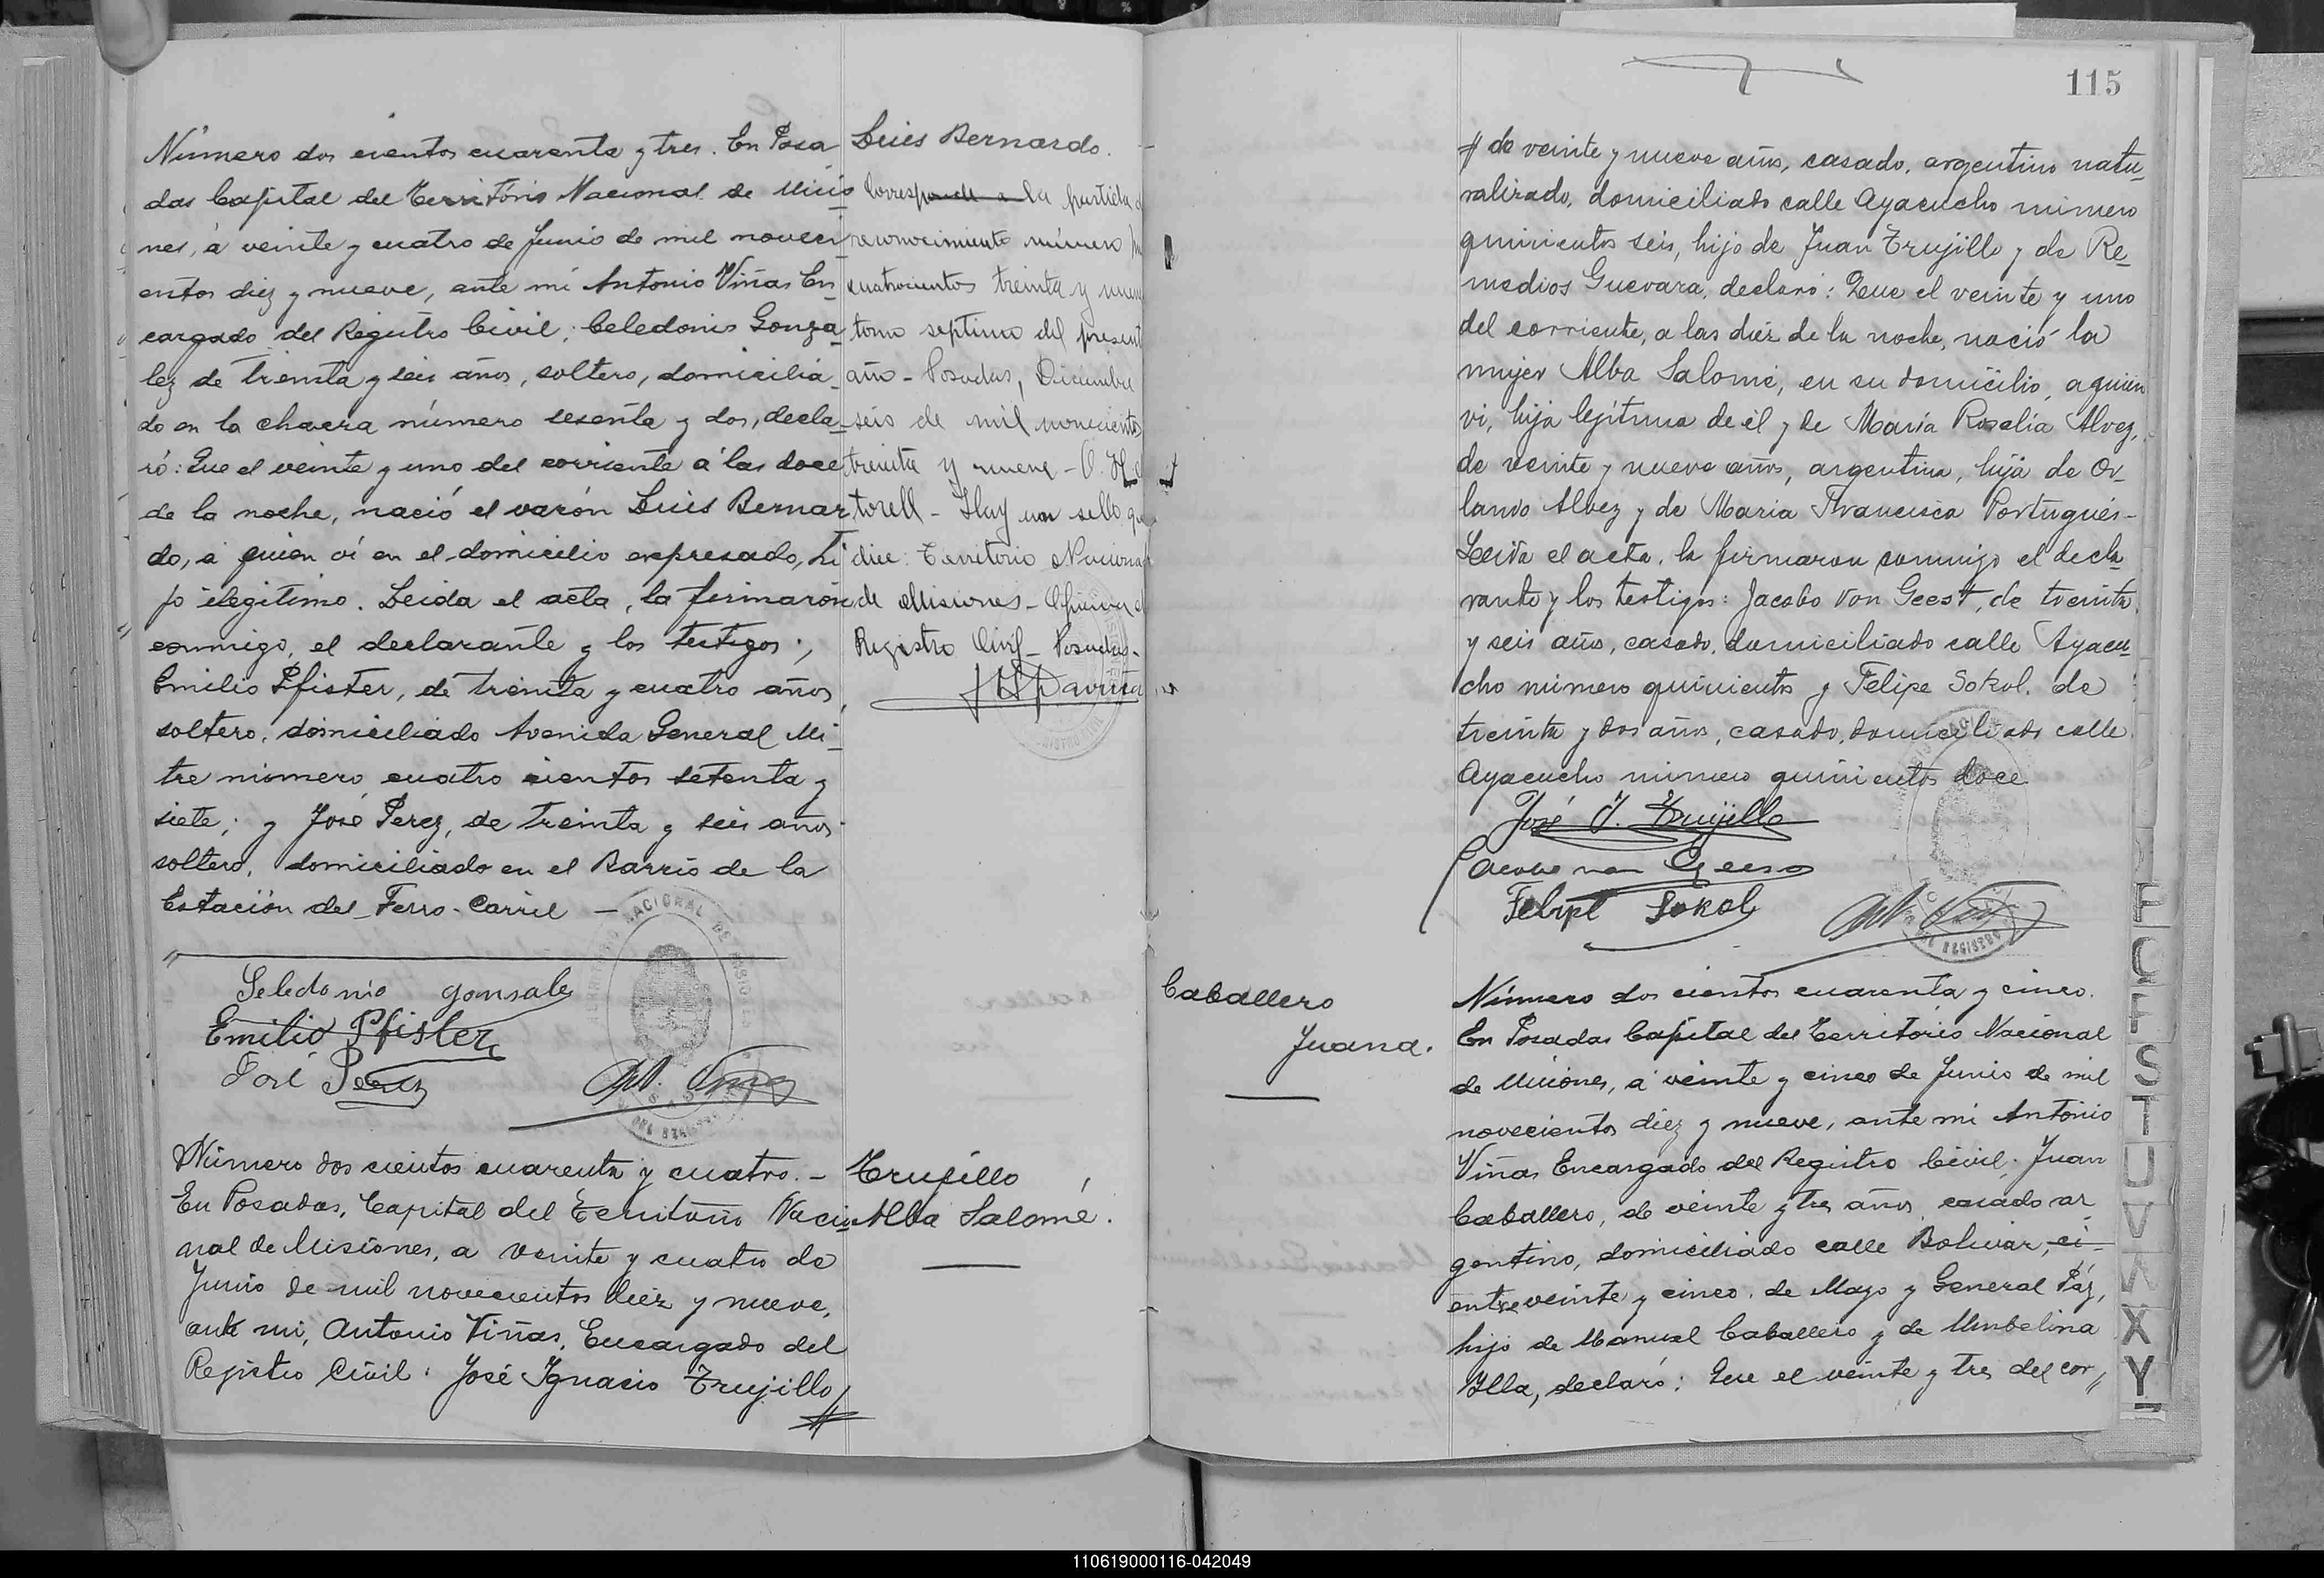 Número dos cientos cuarenta y tres. En Posa
das Capital del Territorio Nacional de Misio
nes, á veinte y cuatro de Junio de mil noveci
entos diez y nueve, ante mi Antonio Viñas En
cargado del Registro Civil; Celedonio Gonza
lez de treinta y seis años, soltero, domicilia
do en la chacra número sesenta y dos, decla
ró: Que el veinte y uno del corriente á las doce
de la noche, nació el varón Luis Bernar
do, á quien ví en el domicilio expresado, hi
jo ilegitimo. Leida el acta, la firmaron
conmigo, el declarante y los testigos;
Emilio Pfister, de treinta y cuatro años,
soltero, domiciliado Avenida General Mi
tre número cuatro cientos setenta y
siete; y José Perez, de treinta y seis años
soltero, domiciliado en el Barrio de la
Estación del Ferro-Carril —
Seledonio gonsales
Emilio Pfister
José Perez
Número dos cientos cuarenta y cuatro. –
En Posadas, Capital del Territorio Nacio
nal de Misiones, a veinte y cuatro de
Junio de mil novecientos diez y nueve,
ante mi, Antonio Viñas, Encargado del
Registro Civil: José Ignacio Trujillo //
Luis Bernardo.
Corresponde a la partida
reconocimiento número
cuatrocientos treinta y nueve
tomo septimo del presente
año - Posadas, Diciembre
seis de mil novecientos
treinta y nueve - O. H.
torell - Hay un sello que
dice: Territorio Nacional
de Misiones - Oficina
Registro Civil - Posadas -
Trujillo
Alba Salomé.
115
// de veinte y nueve años, casado, argentino natu_
ralizado, domiciliado calle Ayacucho número
quinientos seis, hijo de Juan Trujillo y de Re_
medios Guevara, declaró: Que el veinte y uno
del corriente, a las diez de la noche, nació la
mujer Alba Salomé, en su domicilio, a quien
vi, hija legítima de él y de María Rosalía Alvez,
de veinte y nueve años, argentina, hija de Or_
lando Alvez y de Maria Francisca Portugués -
Leida el acta, la firmaron conmigo el decla_
rante y los testigos: Jacobo Von Geest, de treinta
y seis años, casado, domiciliado calle Ayacu_
cho número quinientos y Felipe Sokol, de
treinta y dos años, casado, domiciliado calle
Ayacucho número quinientos doce
José I. Trujillo
Felipe Sokol
Caballero
Juana.
Número dos cientos cuarenta y cinco.
En Posadas Capital del Territorio Nacional
de Misiones, á veinte y cinco de Junio de mil
novecientos diez y nueve, ante mi Antonio
Viñas Encargado del Registro Civil; Juan
Caballero, de veinte y tres años, casado ar
gentino, domiciliado calle Bolivar, ci
entre veinte y cinco de Mayo y General Páz,
hijo de Manuel Caballero y de Umbelina
Ylla, declaró: Que el veinte y tres del cor //
F
S
T
U
V
X
Y
110619000116-042049